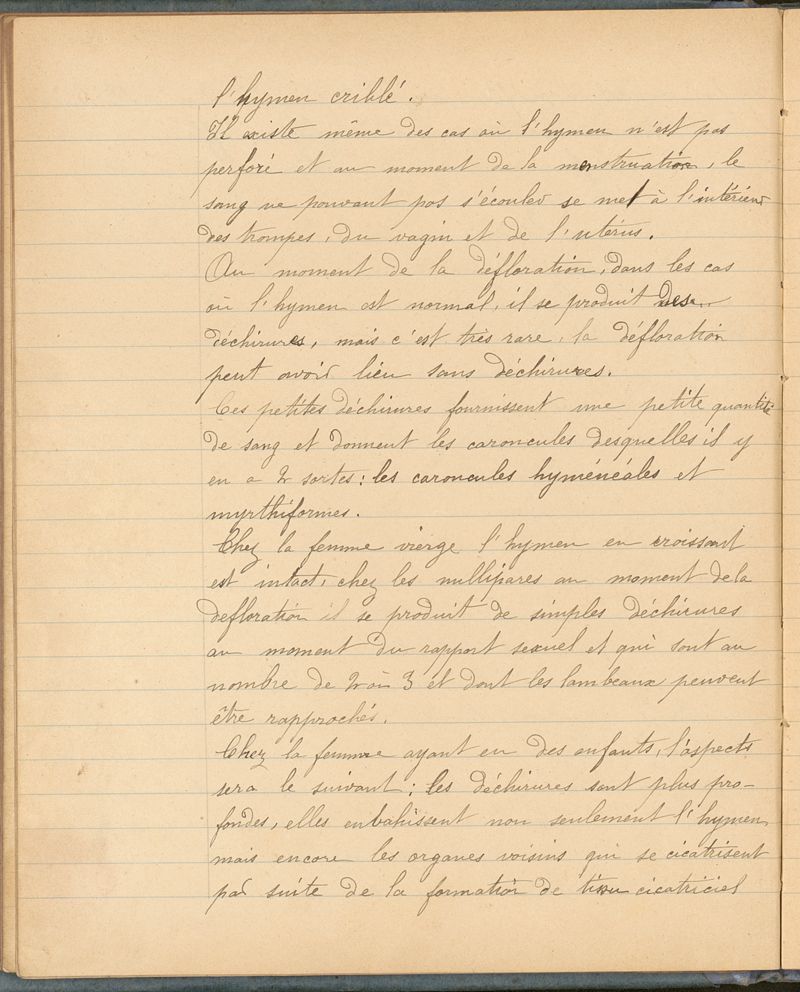 l'hymen criblé.
Il existe même des cas où l'hymen n'est pas
perforé et au moment de la menstruation, le
sang ne pouvant pas s'écouler se met à l'intérieur
des trompes, du vagin et de l'utérus.
Au moment de la défloration, dans les cas
où l'hymen est normal, il se produit des
déchirures, mais c'est très rare, la défloration
peut avoir lieu sans déchirures.
Ces petites déchirures fournissent une petite quantité
de sang et donnent les caroncules desquelles il y
en a 2 sortes : les caroncules hyménéales et
myrthiformes.
Chez la femme vierge l'hymen en croissant
est intact, chez les nullipares au moment de la
defloration il se produit de simples déchirures
au moment du rapport sexuel et qui sont au
nombre de 2 où 3 et dont les lambeaux peuvent
être rapprochés.
Chez la femme ayant eu des enfants, l'aspect
sera le suivant : les déchirures sont plus pro-
fondes, elles enbahissent non seulement l'hymen
mais encore les organes voisins qui se cicatrisent
par suite de la formation de tissu cicatriciel